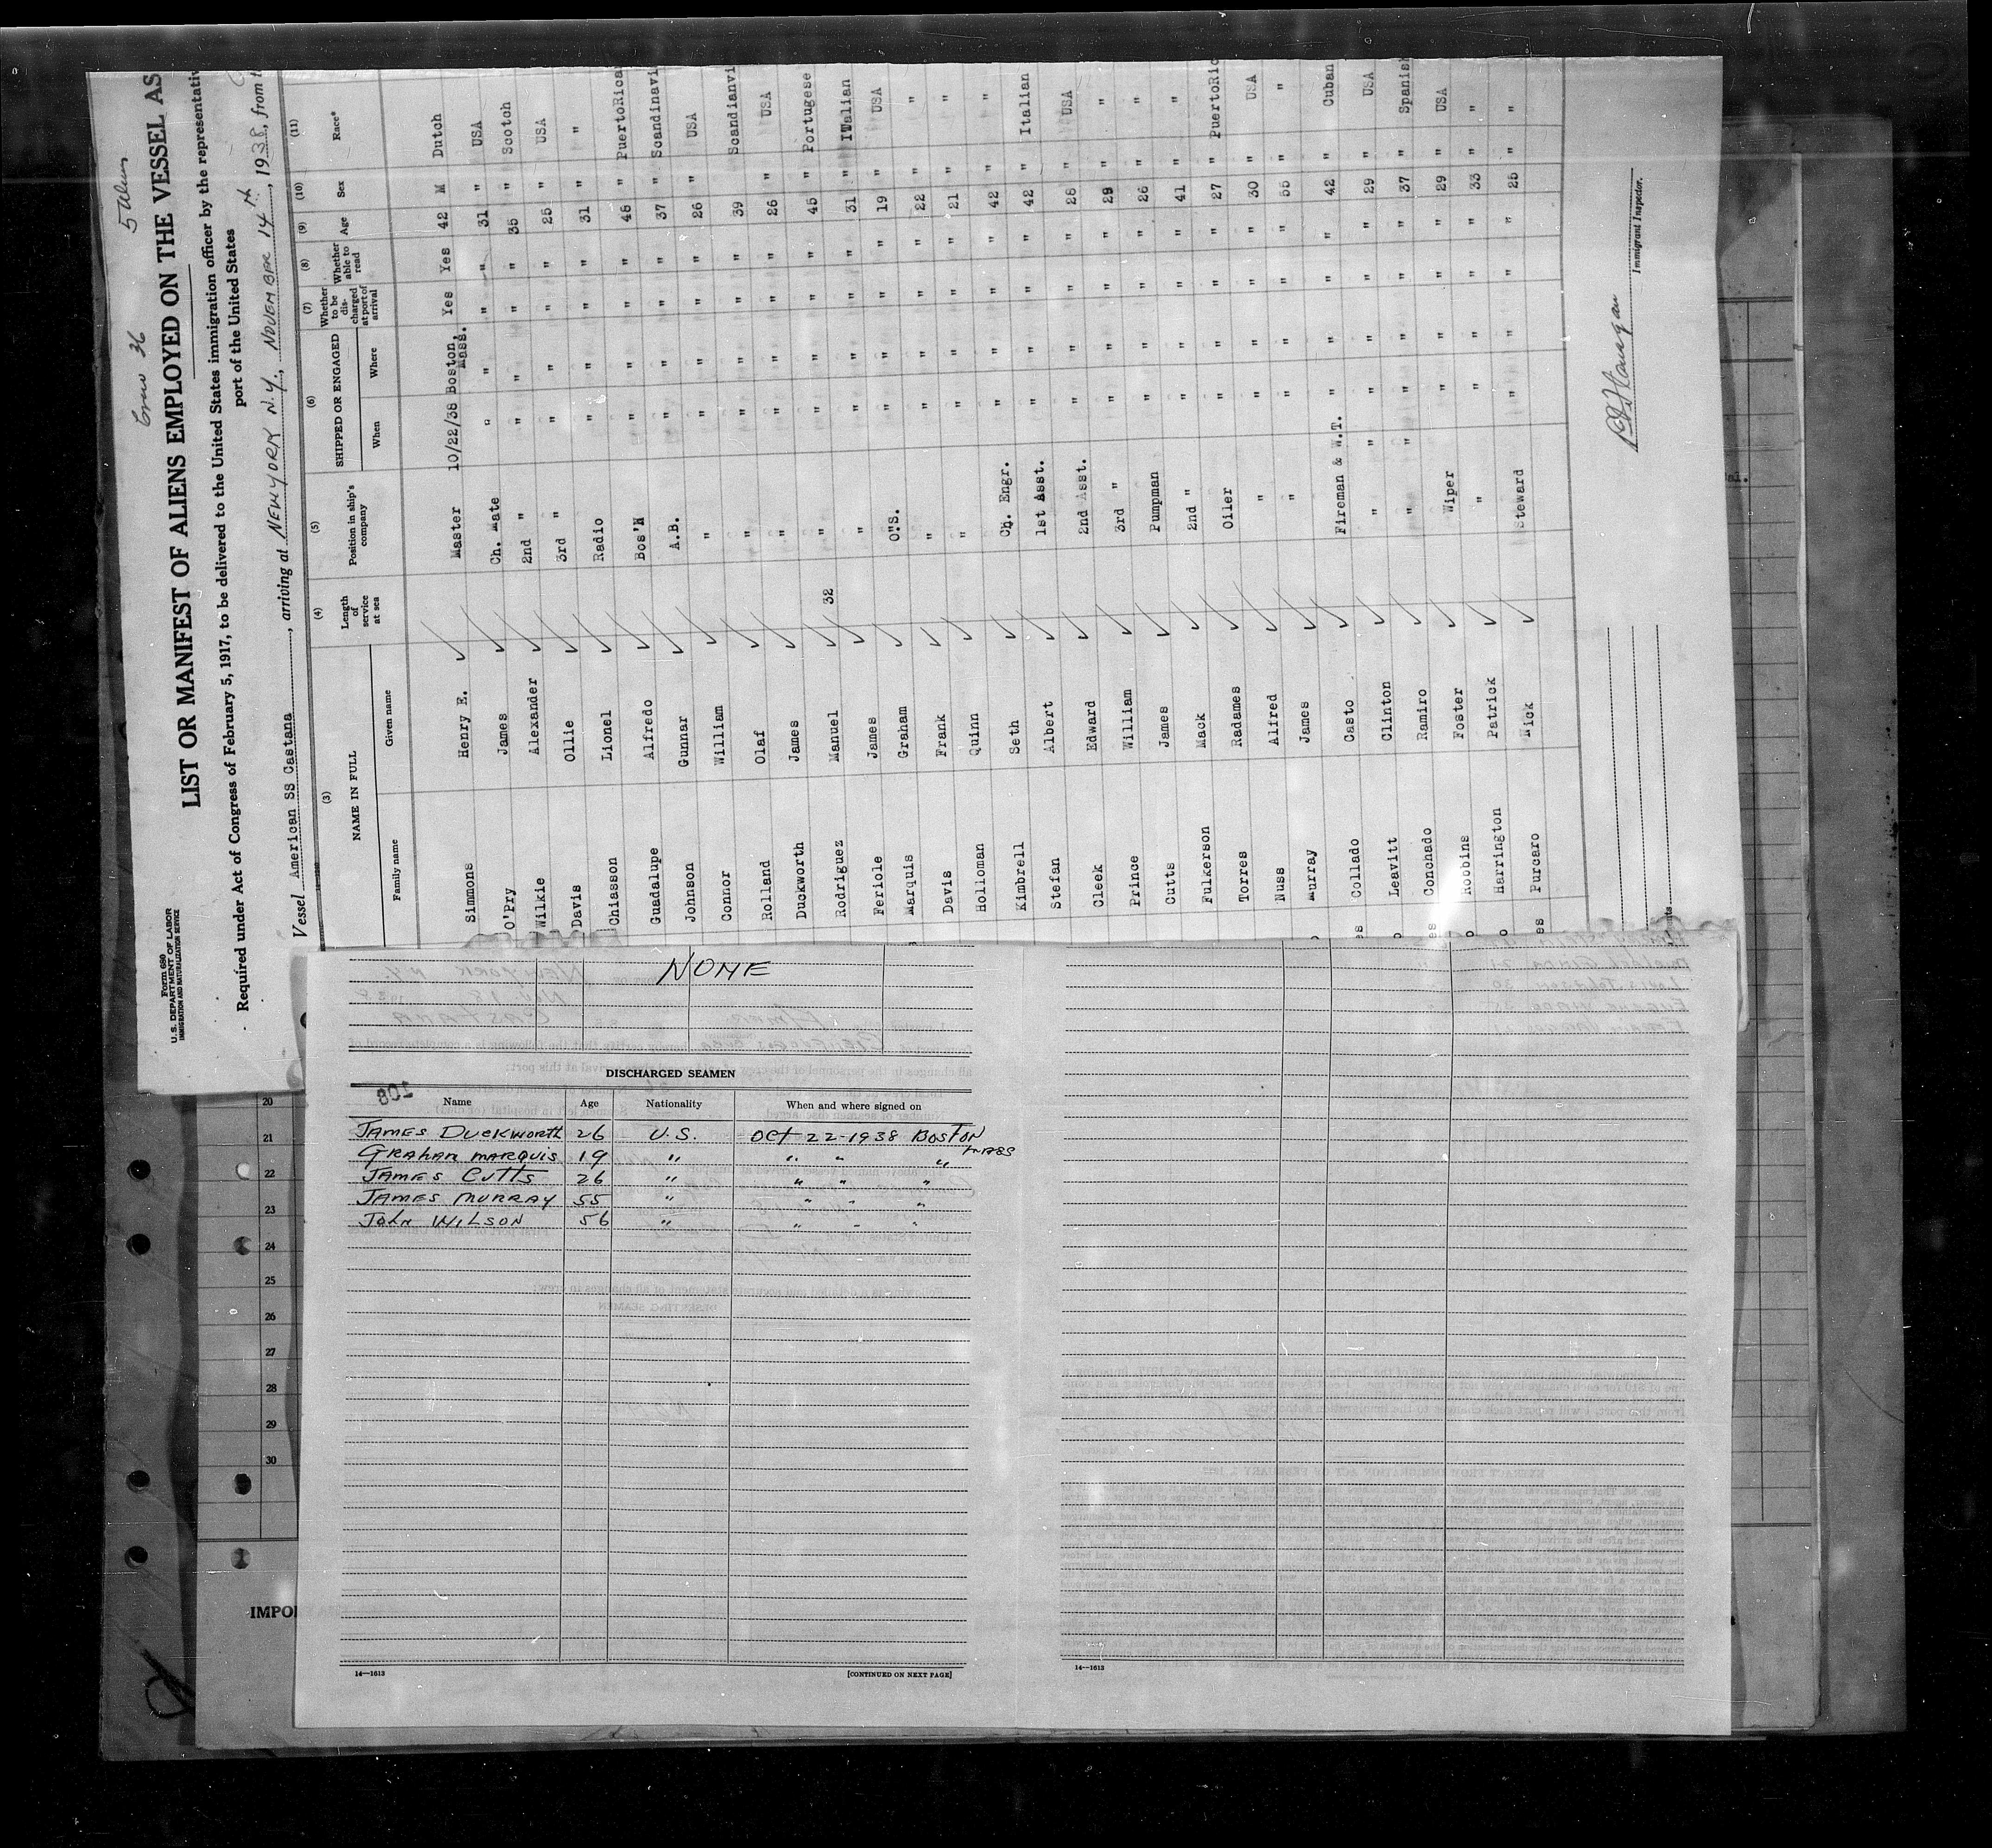 Crew 36 5 Aliens
Form 680
U.S. DEPARTMENT OF LABOR
IMMIGRATION AND NATURALIZATION SERVICE
LIST OR MANIFEST OF ALIENS EMPLOYED ON THE VESSEL AS
Required under Act of Congress of February 5, 1917, to be delivered to the United States immigration officer by the representativ
port of the United States
Vessel American SS Castana, arriving at NEW YORK N.Y., NOVEMBER 14th, 1938, from t
(3) (4) (5) (6) (7) (8) (9) (10) (11)
NAME IN FULL Length of service at sea Position in ship's company SHIPPED OR ENGAGED Whether to be discharged at port of arrival Whether able to read Age Sex Race*
Family name Given name When Where
Simmons Henry E. Master 10/22/38 Boston, Mass. Yes Yes 42 M Dutch
O'Pry James Ch. Mate " " " " 31 " USA
Wilkie Alexander 2nd " " " " " 35 " Scotch
Davis Ollie 3rd " " " " " 25 " USA
Chiasson Lionel Radio " " " " 31 " "
Guadalupe Alfredo Bos'N " " " " 46 " PuertoRica
Johnson Gunnar A.B. " " " " 37 " Scandinavi
Connor William " " " " " 26 " USA
Rolland Olaf " " " " " 39 " Scandianvi
Duckworth James " " " " " 26 " USA
Rodriguez Manuel 32 " " " " " 45 " Portugese
Feriole James " " " " " 31 " Italian
Marquis Graham O.S. " " " " 19 " USA
Davis Frank " " " " " 22 " "
Holloman Quinn " " " " " 21 " "
Kimbrell Seth Ch. Engr. " " " " 42 " "
Stefan Albert 1st Asst. " " " " 42 " Italian
Cleek Edward 2nd Asst. " " " " 28 " USA
Prince William 3rd " " " " " 29 " "
Cutts James Pumpman " " " " 26 " "
Fulkerson Mack 2nd " " " " " 41 " "
Torres Radames Oiler " " " " 27 " PuertoRic
Nuss Alfred " " " " " 30 " USA
Murray James " " " " " 55 " "
Collado Casto Fireman & W.T. " " " " 42 " Cuban
Leavitt Clinton " " " " " 29 " USA
Conchado Ramiro " " " " " 37 " Spanis
Robbins Foster Wiper " " " " 29 " USA
Harrington Patrick " " " " " 33 " "
Purcaro Nick Steward " " " " 25 " "
Immigrant Inspector.
NONE
DISCHARGED SEAMEN
208
Name Age Nationality When and where signed on
JAMES DUCKWORTH 26 U.S. OCT 22-1938 BOSTON
MASS
GRAHAM MARQUIS 19 " " " "
JAMES CUTTS 26 " " " "
JAMES MURRAY 55 " " " "
JOHN WILSON 56 " " " "
14—1613 [CONTINUED ON NEXT PAGE]
14—1613
20
21
22
23
24
25
26
27
28
29
30
IMPO